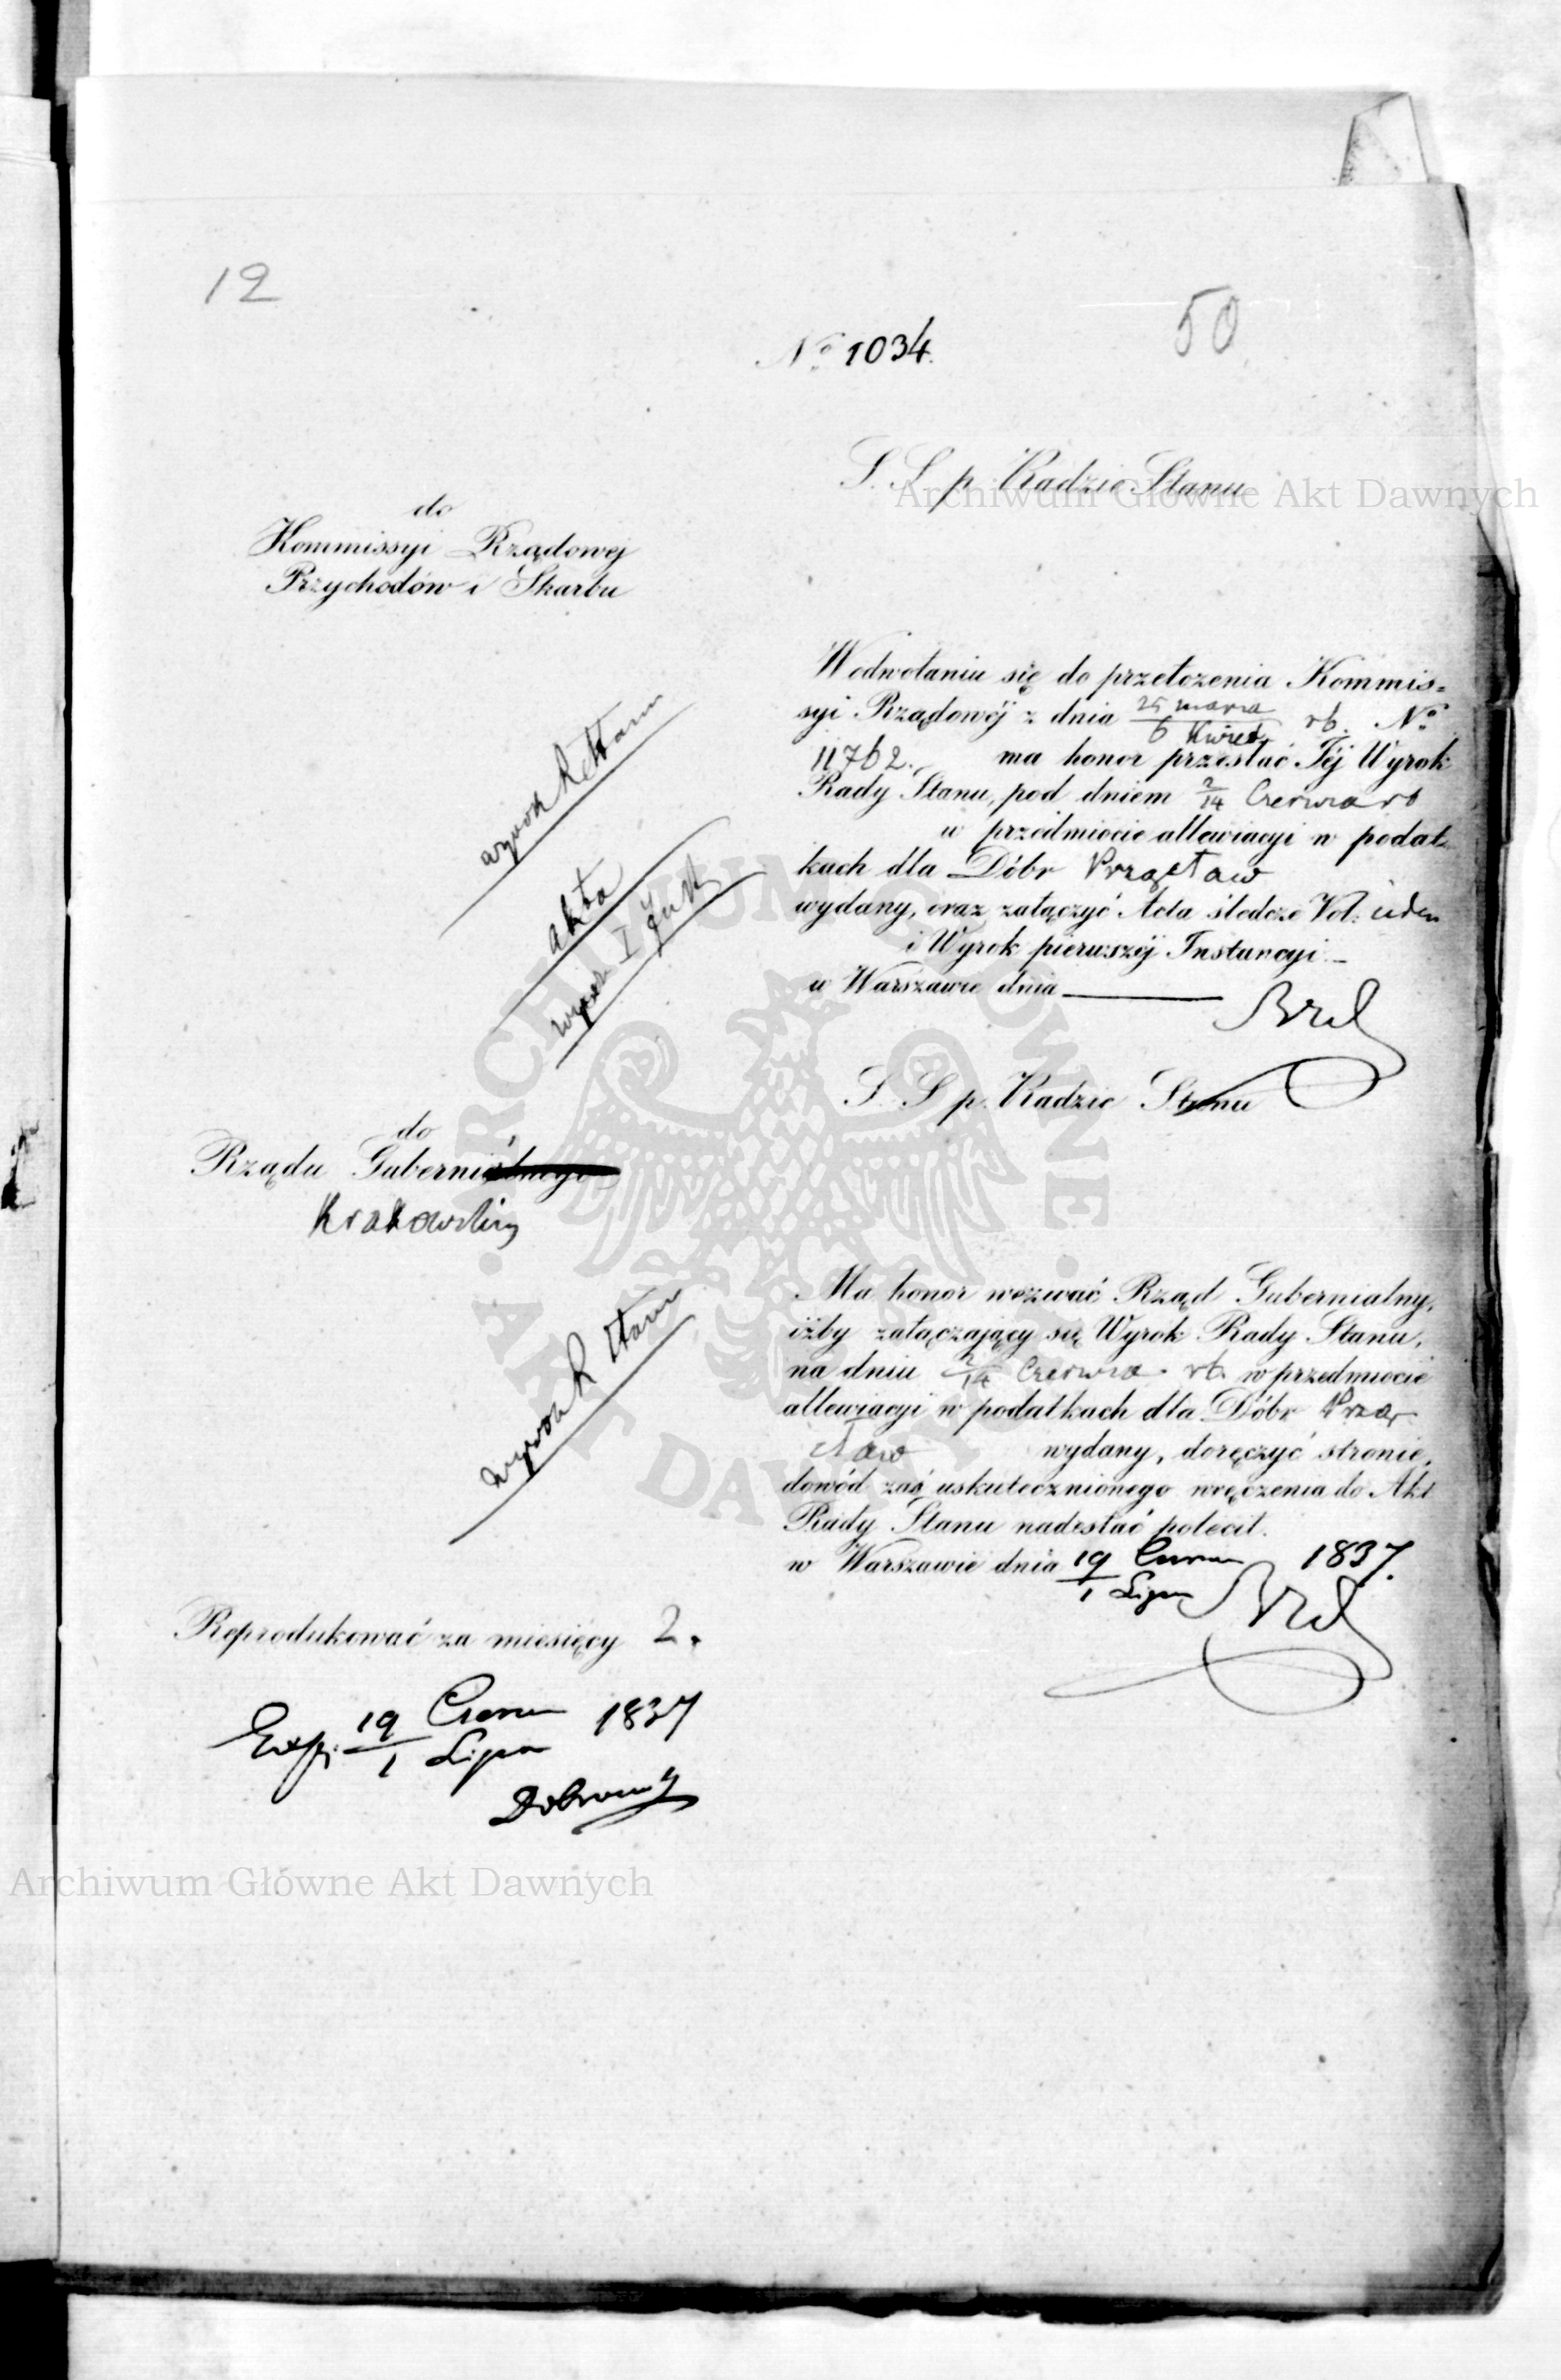 12
50
№ 1034.
S. S. p. Radzie Stanu
do
Kommissyi Rządowej
Przychodów i Skarbu
W odwołaniu się do przełożenia Kommis=
syi Rządowéj z dnia 25 marca / 6 Kwiet rb. №
11762., ma honor przesłać Téj Wyrok
Rady Stanu, pod dniem 2/14 Czerwca rb
w przedmiocie allewiacyi w podat
kach dla Dóbr Przęsław
wydany, oraz załączyć Acta śledcze Vol: ieden
i Wyrok pierwszéj Instancyi.
w Warszawie dnia
wyrok R Stanu
akta
wyrok I Inst
S. S. p. Radzie Stanu
do
Rządu Gubernialnego
Krakowskiego
Ma honor wezwać Rząd Gubernialny,
iżby załączający się Wyrok Rady Stanu,
na dniu 2/14 Czerwca rb. w przedmiocie
allewiacyi w podatkach dla Dóbr Przę
sław wydany, doręczyć stronie,
dowód zaś uskutecznionego wręczenia do Akt
Rady Stanu nadesłać polecił.
w Warszawie dnia 19 Czerwca / 1 Lipca 1837.
wyrok R Stanu
Reprodukować za miesięcy 2.
Exp: 19 Czerw / 1 Lipca 1837
Archiwum Główne Akt Dawnych
Archiwum Główne Akt Dawnych
ARCHIWUM GŁÓWNE AKT DAWNYCH